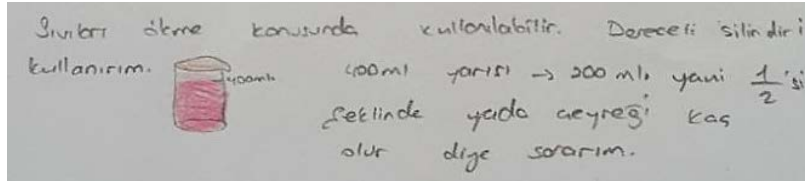 Sıvıları ölçme konusunda kullanılabilir. Dereceli silindiri
kullanırım. 400ml 400ml yarısı → 200 ml, yani 1/2'si
şeklinde yada çeyreği kaç
olur diye sorarım.